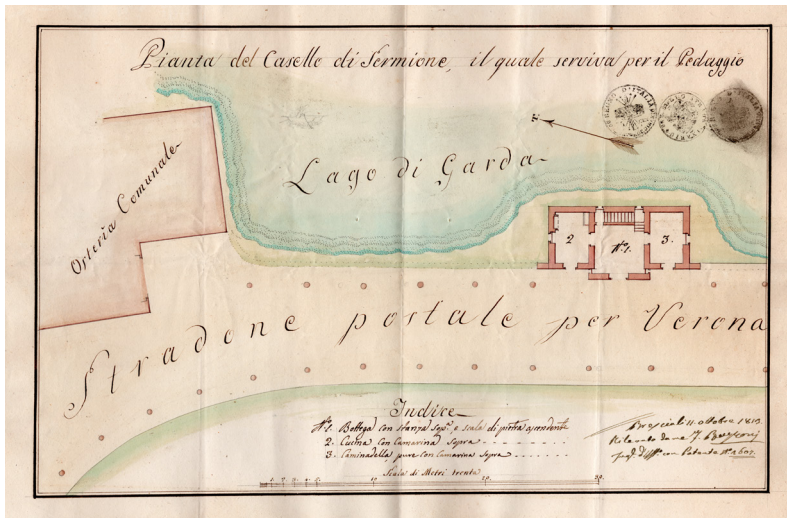 Pianta del Casello di Sermione, il quale serviva per il Pedaggio
REGNO D'ITALIA
Lago di Garda
Osteria Comunale
2
Nº1.
3.
Stradone postale per Verona
Indice
Nº1. Bottega con stanza sopª. e scala di pietra ascendente
2. Cucina con Camarina sopra
3. Caminadella pure con Camarina sopra
Scala di Metri trenta
10
20.
30.
Brescia li 11. ottobre
Rilevato da me
con Patente Nº